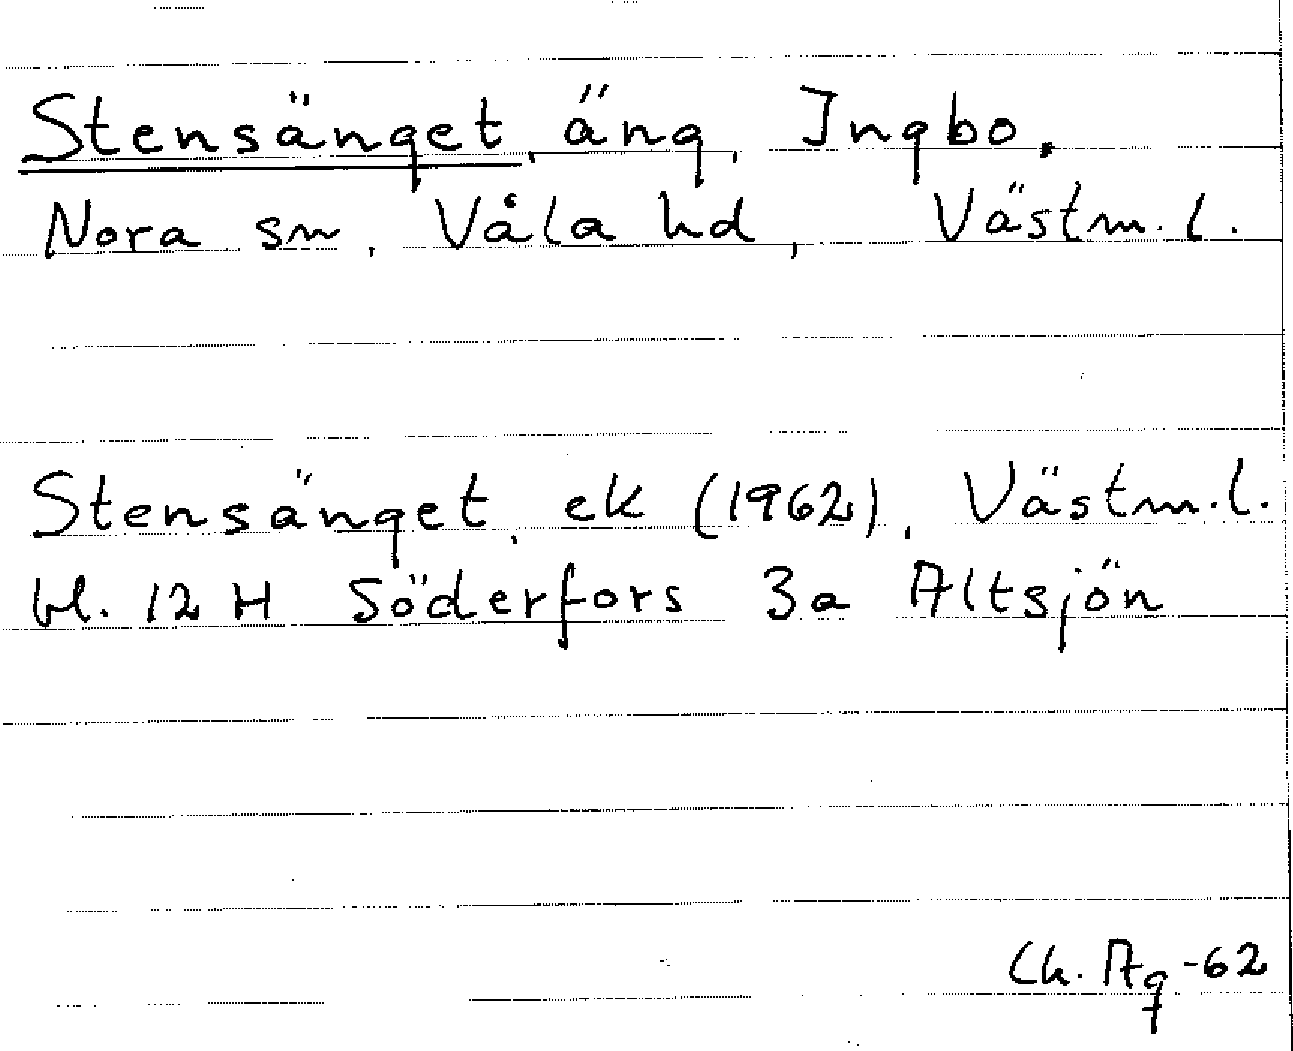 Stensänget, äng, Ingbo.
Nora sn, Våla hd, Västm. l.
Stensänget, ek (1962), Västm. l.
bl. 12 H Söderfors 3a Altsjön
Ch. Ag -62